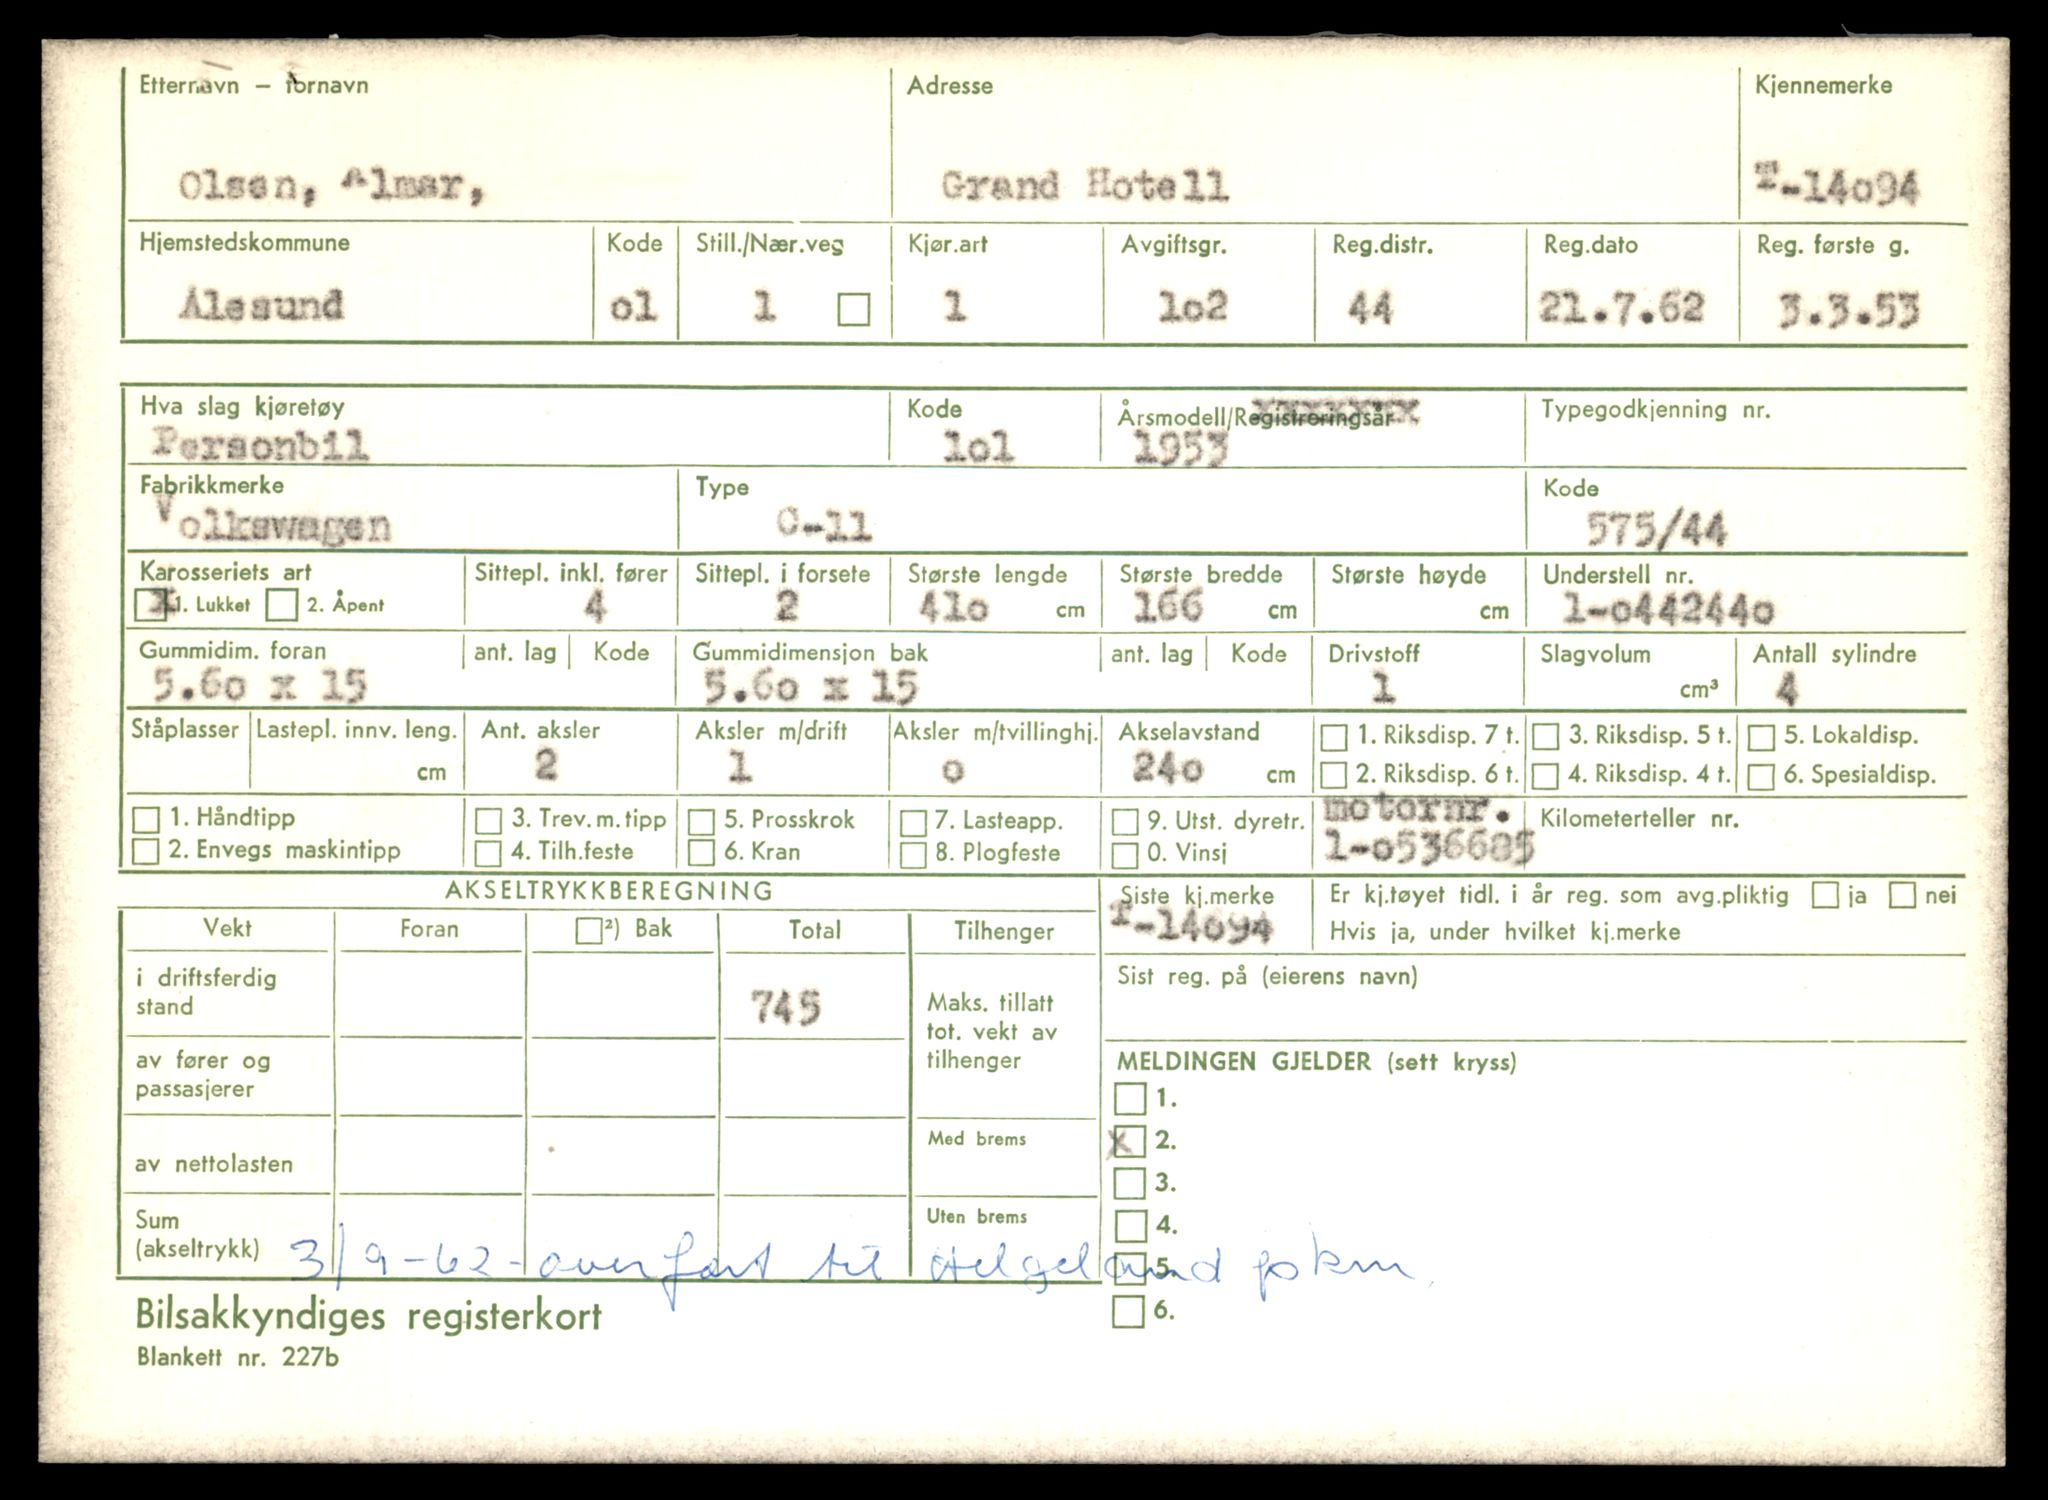 Etternavn – fornavn Adresse Kjennemerke
Olsen, Almar, Grand Hotell T-14o94
Hjemstedskommune Kode Still./Nær.veg Kjør.art Avgiftsgr. Reg.distr. Reg.dato Reg. første g.
Ålesund o1 1 1 1o2 44 21.7.62 3.3.53
Hva slag kjøretøy Kode Årsmodell/Registreringsår Typegodkjenning nr.
Personbil 1o1 1953
Fabrikkmerke Type Kode
Volkswagen C-11 575/44
Karosseriets art Sittepl. inkl. fører Sittepl. i forsete Største lengde Største bredde Største høyde Understell nr.
x 1. Lukket 2. Åpent 4 2 41o cm 166 cm cm 1-o44244o
Gummidim. foran ant. lag Kode Gummidimensjon bak ant. lag Kode Drivstoff Slagvolum Antall sylindre
5.6o x 15 5.6o x 15 1 cm³ 4
Ståplasser Lastepl. innv. leng. Ant. aksler Aksler m/drift Aksler m/tvillinghj. Akselavstand 1. Riksdisp. 7 t. 3. Riksdisp. 5 t. 5. Lokaldisp.
cm 2 1 o 24o cm 2. Riksdisp. 6 t. 4. Riksdisp. 4 t. 6. Spesialdisp.
1. Håndtipp 3. Trev. m. tipp 5. Prosskrok 7. Lasteapp. 9. Utst. dyretr. motornr. Kilometerteller nr.
2. Envegs maskintipp 4. Tilh.feste 6. Kran 8. Plogfeste 0. Vinsj 1-o536685
AKSELTRYKKBEREGNING Siste kj.merke Er kj.tøyet tidl. i år reg. som avg.pliktig ja nei
Vekt Foran ²) Bak Total Tilhenger T-14o94 Hvis ja, under hvilket kj.merke
i driftsferdig stand 745 Maks. tillatt tot. vekt av tilhenger Sist reg. på (eierens navn)
av fører og passasjerer MELDINGEN GJELDER (sett kryss)
1.
av nettolasten Med brems x 2.
3.
Sum (akseltrykk) Uten brems 4.
3/9-62 - overført til Helgeland pokm. 5.
Bilsakkyndiges registerkort 6.
Blankett nr. 227b